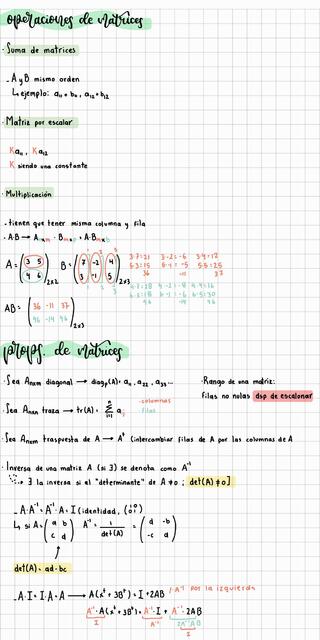 operaciones de matrices
· Suma de matrices
- A y B mismo orden
↳ ejemplo: a₁₁ + b₁₁, a₁₂ + b₁₂
· Matriz por escalar
K a₁₁, K a₁₂
K siendo una constante
· Multiplicación
- tienen que tener misma columna y fila
· A·B → Aₙₓₘ · Bₘₓₚ = A·B
A = (3 5 / 4 6)₂ₓ₂ B = (7 -2 4 / 3 -1 5)₂ₓ₃
3·7=21 3·-2=-6 3·4=12
5·3=15 5·-1=-5 5·5=25
36 -11 37
4·7=28 4·-2=-8 4·4=16
6·3=18 6·-1=-6 6·5=30
46 -14 46
AB = (36 -11 37 / 46 -14 46)₂ₓ₃
props. de matrices
· Sea Aₙₓₘ diagonal → diag(A): a₁₁, a₂₂, a₃₃...
· Rango de una matriz:
filas no nulas dsp de escalonar
· Sea Aₙₓₘ traza → tr(A): Σ
- columnas
filas
· Sea Aₙₓₘ traspuesta de A → Aᵗ (intercambiar filas de A por las columnas de A
· Inversa de una matriz A (si ∃) se denota como A⁻¹
→ ∃ la inversa si el "determinante" de A ≠ 0 ; det(A) ≠ 0]
- A·A⁻¹ = A⁻¹·A = I (identidad,
↳ si A = (a b / c d) A⁻¹ = 1/det(A) = (d -b / -c a)
det(A) = ad - bc
- A·I = I·A = A → A(x + 3B) = I + 2AB / A⁻¹ por la izquierda
A⁻¹·A(x + 3B) = A⁻¹·I + A⁻¹·2AB
I A⁻¹ 2A⁻¹AB
I